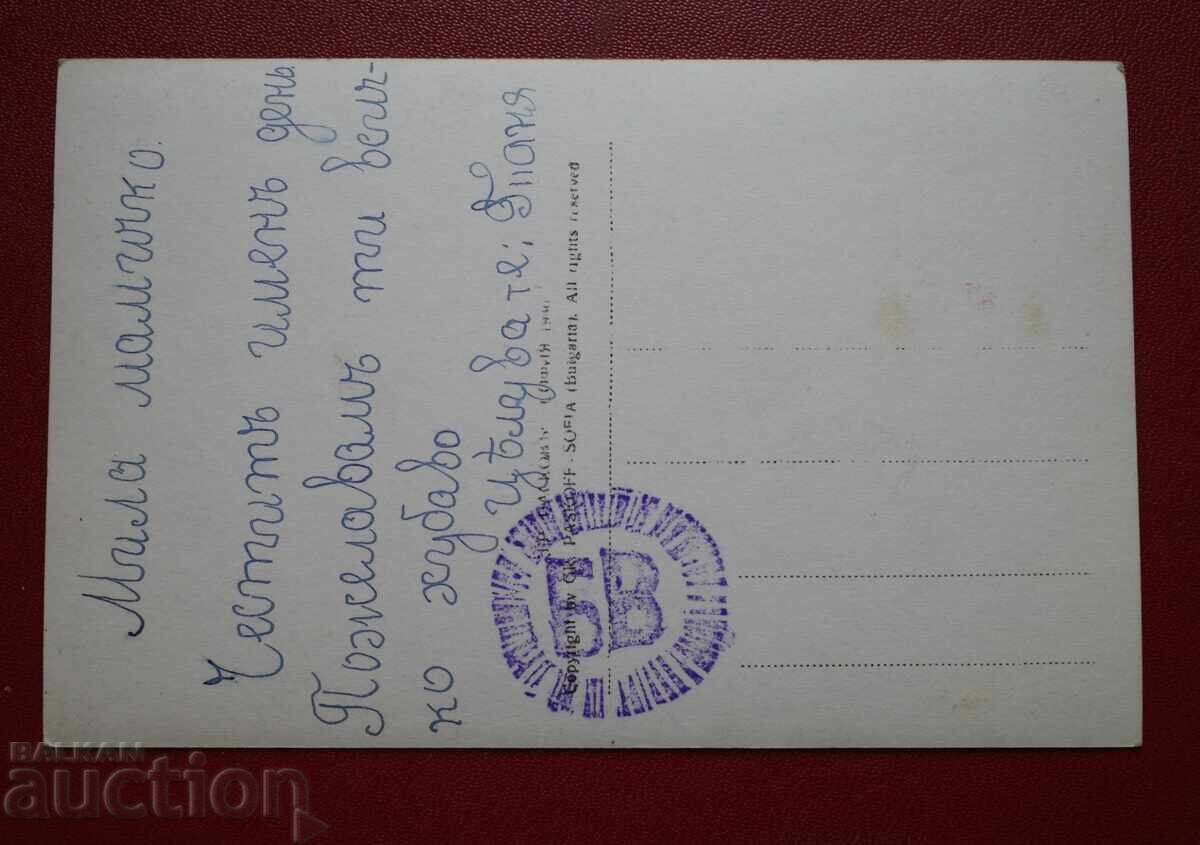 Мила мамичко.
Честитъ именъ день
Пожелавамъ ти велич-
ко хубаво
цѣлува те: Таня
Copyright by Gr. PASKOFF - SOFIA (Bulgaria). All rights reserved
БВ
BALKAN
auction